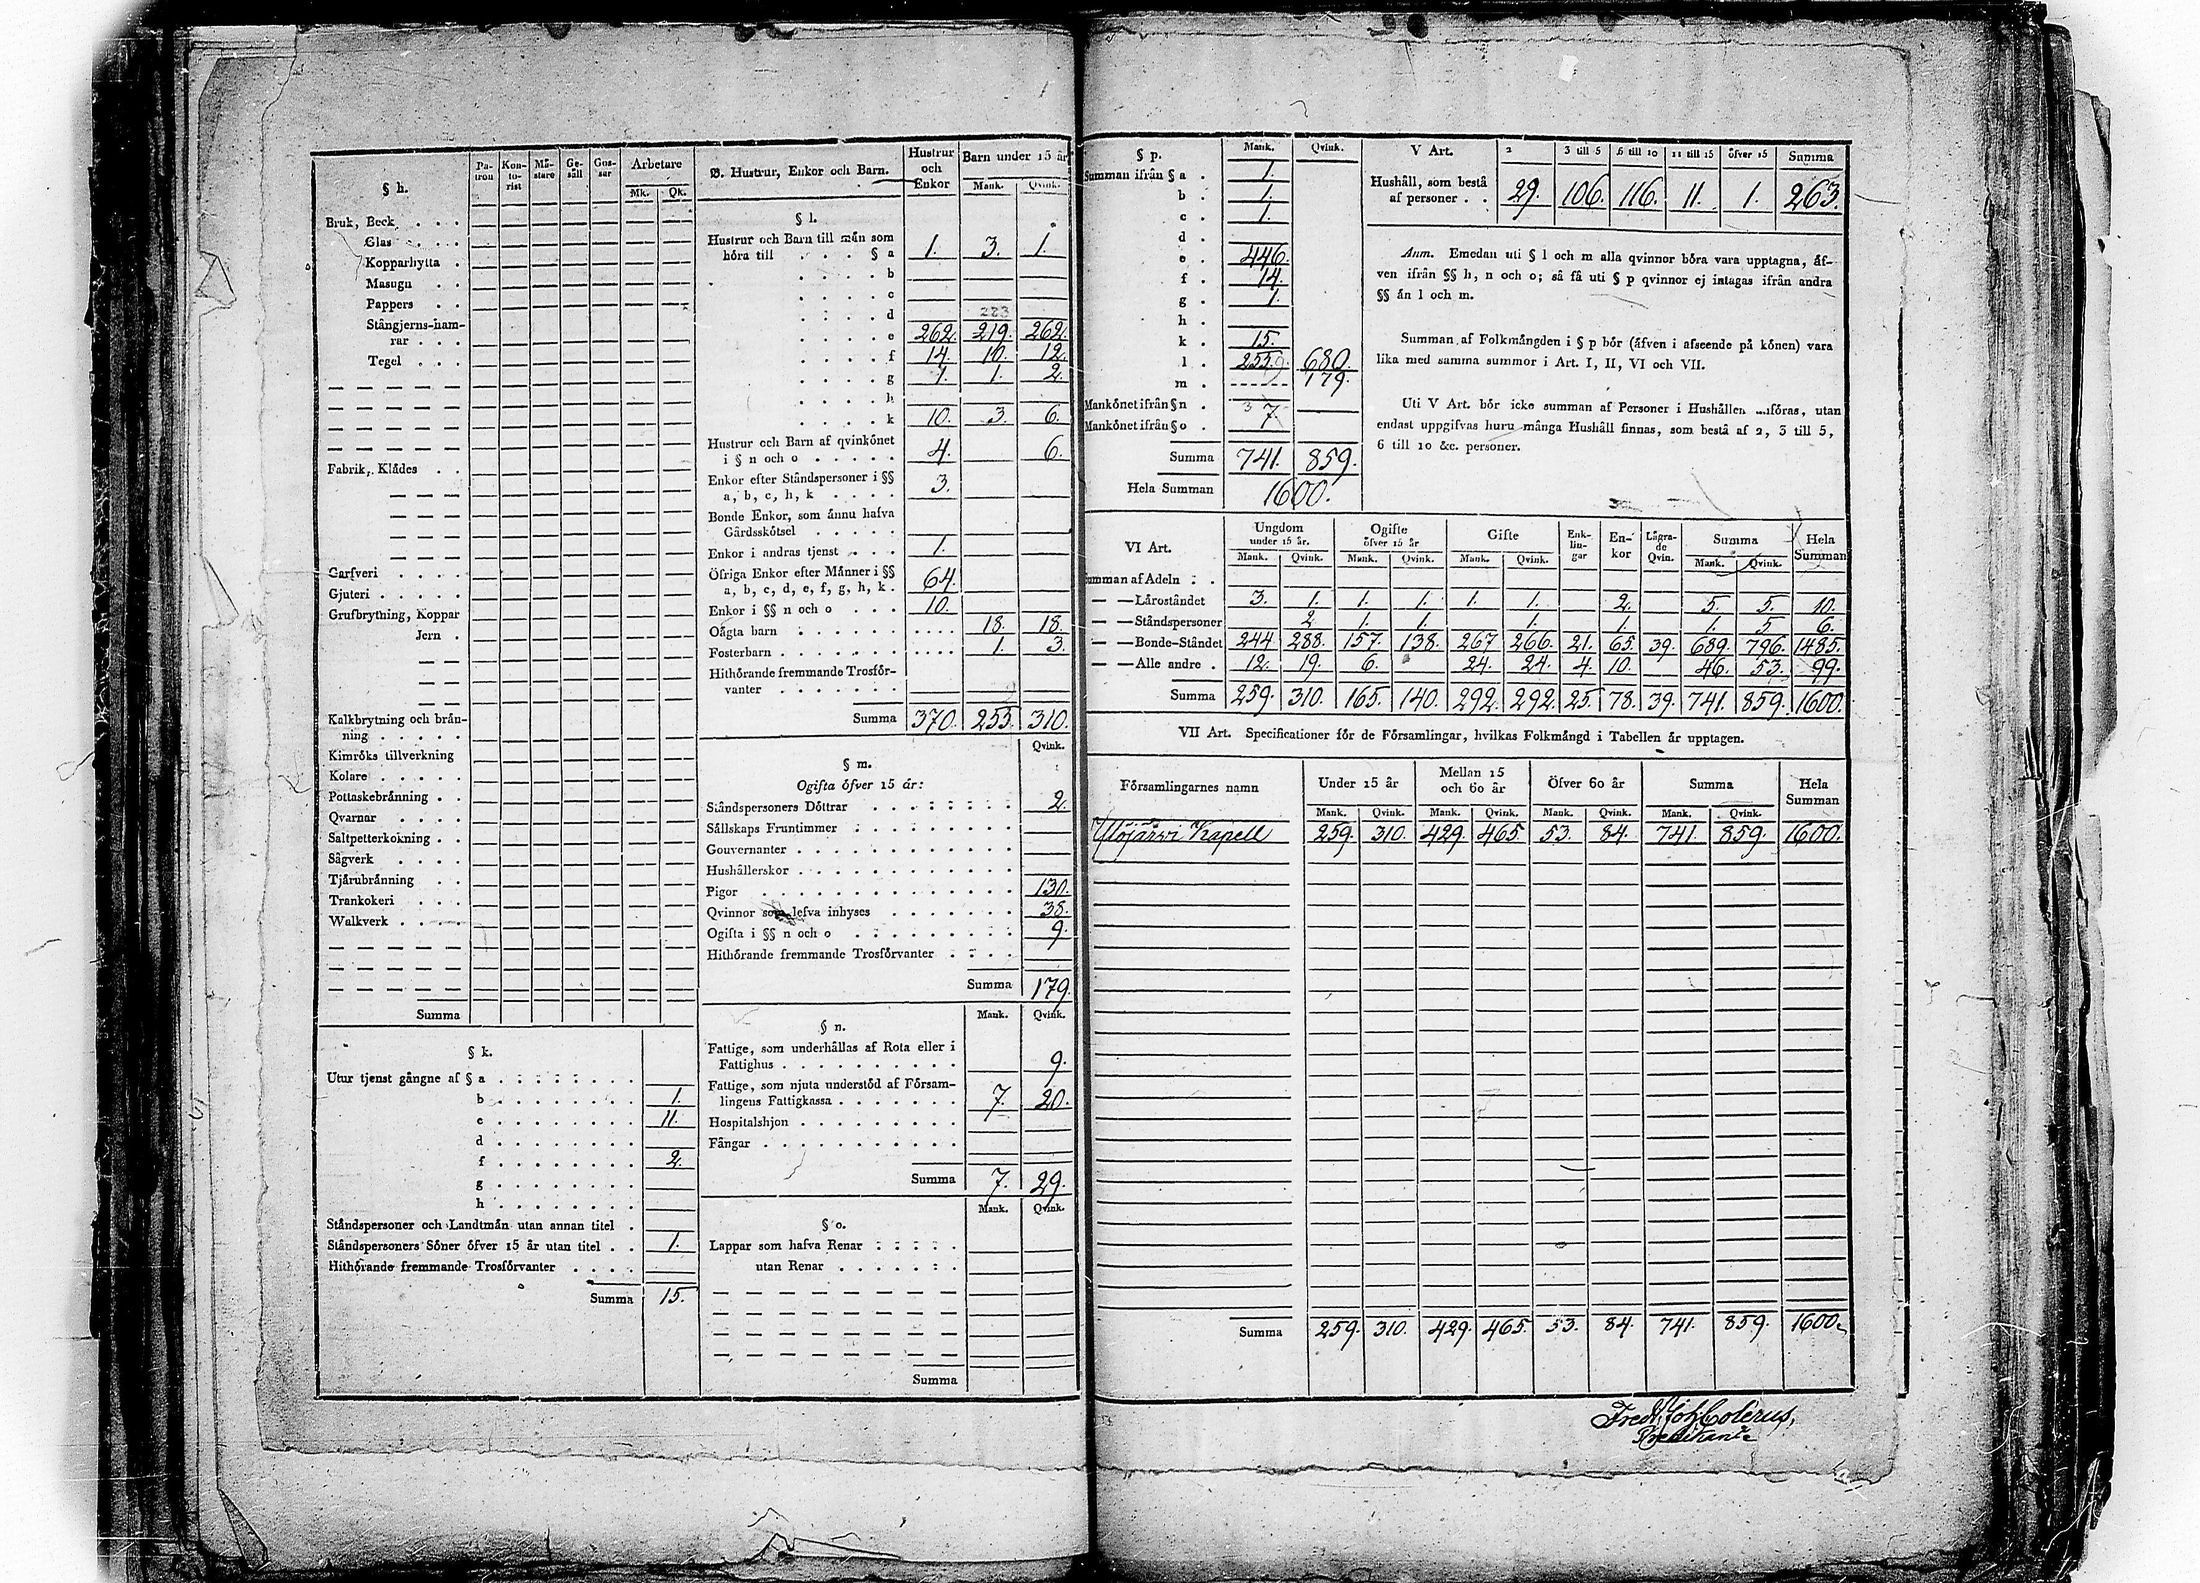 § h. Patron Kontorist Mästare Gesäll Gossar Arbetare
Mk. Qk.
Bruk, Beck
Glas
Kopparhytta
Masugn
Pappers
Stångjerns-hamrar
Tegel
Fabrik, Klädes
Garfveri
Gjuteri
Grufbrytning, Koppar
Jern
Kalkbrytning och bränning
Kimröks tillverkning
Kolare
Pottaskebränning
Qvarnar
Saltpetterkokning
Sågverk
Tjärubränning
Trankokeri
Walkverk
Summa
§ k.
Utur tjenst gångne af § a
b 1.
c 11.
d
f 2.
g
h
Ståndspersoner och Landtmän utan annan titel
Ståndspersoners Söner öfver 15 år utan titel 1.
Hithörande fremmande Trosförvanter
Summa 15.
Hustrur, Enkor och Barn. Hustrur och Enkor Barn under 15 år
Mank. Qvink.
§ l.
Hustrur och Barn till män som
höra till § a 1. 3. 1.
b
c
d 223
e 262. 219. 262.
f 14. 10. 12.
g 1. 1. 2.
h
k 10. 3. 6.
Hustrur och Barn af qvinkönet
i § n och o 4. 6.
Enkor efter Ståndspersoner i §§
a, b, c, h, k 3.
Bonde Enkor, som ännu hafva
Gårdsskötsel
Enkor i andras tjenst 1.
Öfriga Enkor efter Männer i §§
a, b, c, d, e, f, g, h, k. 64.
Enkor i §§ n och o 10.
Oägta barn 18. 18.
Fosterbarn 1. 3.
Hithörande fremmande Trosförvanter
Summa 370. 255. 310.
Qvink.
§ m.
Ogifta öfver 15 år:
Ståndspersoners Döttrar 2.
Sällskaps Fruntimmer
Gouvernanter
Hushållerskor
Pigor 130.
Qvinnor som lefva inhyses 38.
Ogifta i §§ n och o 9.
Hithörande fremmande Trosförvanter
Summa 179.
Mank. Qvink.
§ n.
Fattige, som underhållas af Rota eller i
Fattighus 9.
Fattige, som njuta understöd af Församlingens Fattigkassa 7. 20.
Hospitalshjon
Fångar
Summa 7. 29.
Mank. Qvink.
§ o.
Lappar som hafva Renar
utan Renar
Summa
§ p. Mank. Qvink.
Summan ifrån § a 1.
b 1.
c 1.
d
e 446.
f 14.
g 1.
h
k 15.
l 255. 680.
m 179.
Mankönet ifrån § n 7.
Mankönet ifrån § o
Summa 741. 859.
Hela Summan 1600.
V Art. 2 3 till 5 6 till 10 11 till 15 öfver 15 Summa
Hushåll, som bestå
af personer 29. 106. 116. 11. 1. 263.
Anm. Emedan uti § l och m alla qvinnor böra vara upptagna, äf-
ven ifrån §§ h, n och o; så få uti § p qvinnor ej intagas ifrån andra
§§ än l och m.
Summan af Folkmängden i § p bör (äfven i afseende på könen) vara
lika med samma summor i Art. I, II, VI och VII.
Uti V Art. bör icke summan af Personer i Hushållen införas, utan
endast uppgifvas huru många Hushåll finnas, som bestå af 2, 3 till 5,
6 till 10 &c. personer.
VI Art. Ungdom under 15 år. Ogifte öfver 15 år Gifte Enklingar Enkor Lägrade Qvin. Summa Hela Summan
Mank. Qvink. Mank. Qvink. Mank. Qvink. Mank. Qvink.
Summan af Adeln
— — Läroståndet 3. 1. 1. 1. 1. 1. 2. 5. 5. 10.
— — Ståndspersoner 2. 1. 1. 1. 1. 1. 5. 6.
— — Bonde-Ståndet 244 288. 157. 138. 267 266. 21. 65. 39. 689. 796. 1485.
— — Alle andre 12. 19. 6. 24. 24. 4. 10. 46. 53. 99.
Summa 259. 310. 165. 140. 292. 292. 25. 78. 39. 741. 859. 1600.
VII Art. Specificationer för de Församlingar, hvilkas Folkmängd i Tabellen är upptagen.
Församlingarnes namn Under 15 år Mellan 15 och 60 år Öfver 60 år Summa Hela Summan
Mank. Qvink. Mank. Qvink. Mank. Qvink. Mank. Qvink.
Ylöjärvi Kapell 259. 310. 429. 465. 53. 84. 741. 859. 1600.
Summa 259. 310. 429. 465. 53. 84. 741. 859. 1600.
Fredr. Joh. Colerus,